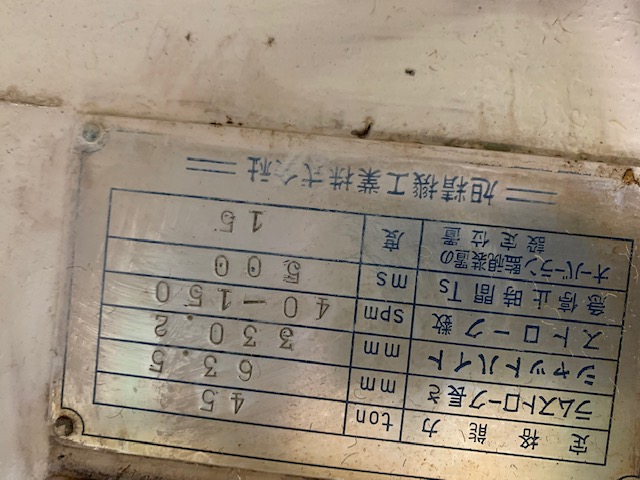 定格能力 ton 45
ラムストローク長さ mm 63.5
シャットハイト mm 330.2
ストローク数 spm 40-150
急停止時間Ts ms 500
オーバーラン監視装置の
設定位置 度 15
旭精機工業株式会社